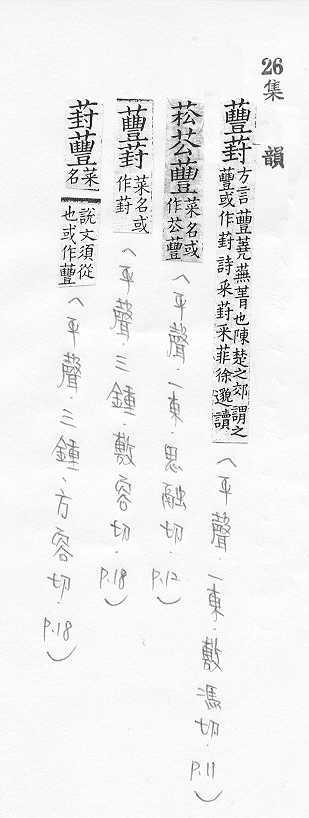 26
集韻
蘴葑方言蘴蕘蕪菁也陳楚之郊謂之蘴或作葑詩采葑采菲徐邈讀（平聲．一東．敷馮切．P.11）
菘蘴菜名或作蘴（平聲．一東．思融切．P.12）
蘴葑菜名或作葑（平聲．三鍾．敷容切．P.18）
葑蘴菜名說文須從也或作蘴（平聲．三鍾．方容切．P.18）